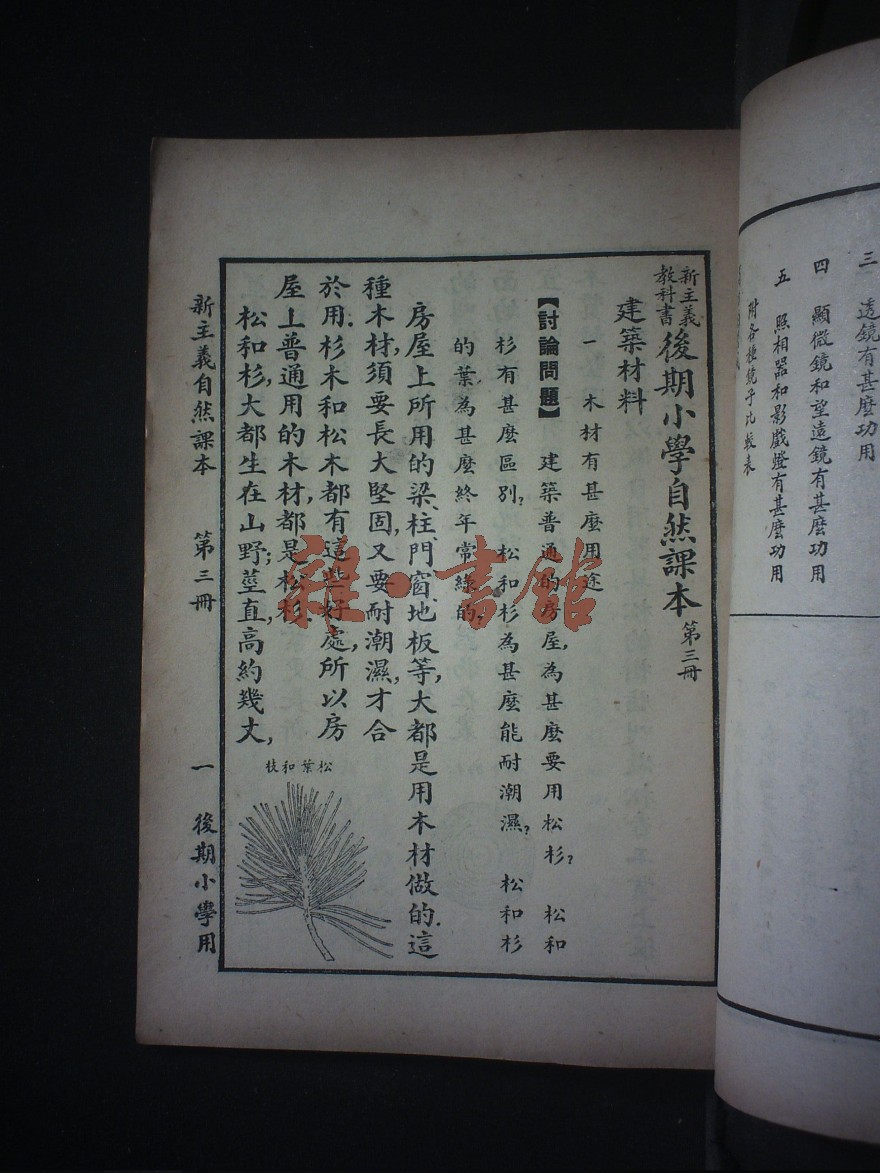 三　透鏡有甚麼功用
四　顯微鏡和望遠鏡有甚麼功用
五　照相器和影戲燈有甚麼功用
附各種鏡子比較表
新主義教科書後期小學自然課本　第三冊
建築材料
一　木材有甚麼用途
【討論問題】　建築普通的房屋,為甚麼要用松杉?　松和
杉有甚麼區別?　松和杉為甚麼能耐潮濕?　松和杉
的葉,為甚麼終年常綠的?
房屋上所用的梁、柱、門、窗、地板等,大都是用木材做的.這
種木材,須要長大堅固,又要耐潮濕,才合
於用.杉木和松木都有這些好處,所以房
屋上普通用的木材,都是松杉.
松和杉,大都生在山野;莖直,高約幾丈,
松葉和枝
新主義自然課本　第三冊　一　後期小學用
雜·書館